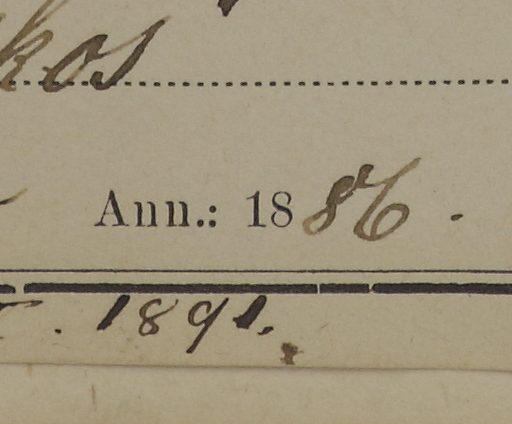 kos
Ann.: 1886.
1891.